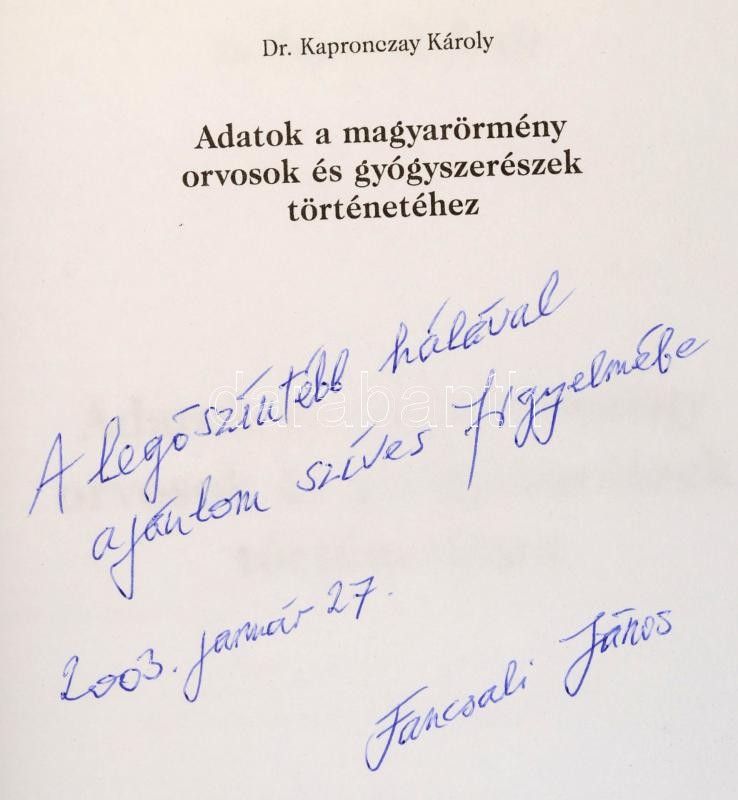 Dr. Kapronczay Károly
Adatok a magyarörmény
orvosok és gyógyszerészek
történetéhez
A legőszintébb hálával
ajánlom szíves figyelmébe
darabanth
2003. január 27.
Fancsali János